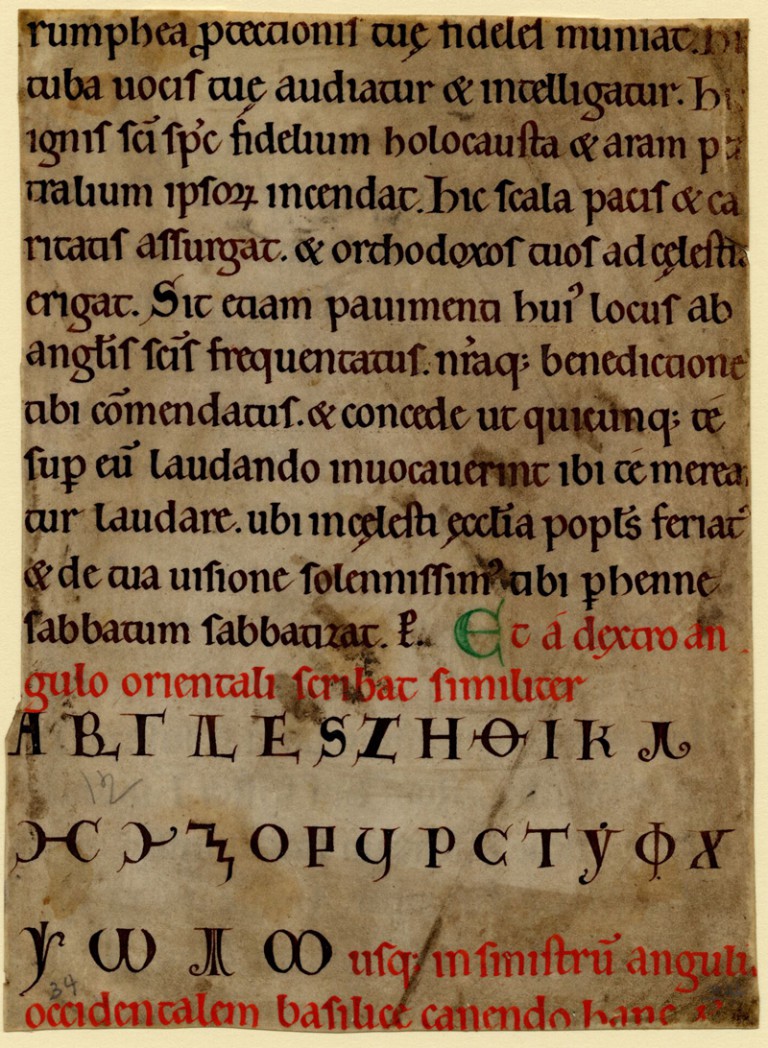 rumphea ꝓtectionis tuę fideles muniat. hi
tuba uocis tuę audiatur & intelligatur. hi
ignis sc̄i sp̄c fidelium holocausta & aram
tralium ipsoꝝ incendat. Hic scala pacis & ca
ritatis assurgat. & orthodoxos tuos ad cęlesti
erigat. Sit etiam pauimenti huiꝰ locus ab
angl̄is sc̄is frequentatus. nr̄aq; benedictione
tibi cōmendatus. & concede ut quicunq; te
suꝑ eū laudando inuocauerint ibi te merea
tur laudare. ubi in cęlesti ęcclīa popl̄s feriat᷒
& de tua uisione solennissimꝰ tibi ꝑhenne
sabbatum sabbatizat. ꝑ. Et á dextro an
gulo orientali scribat similiter
Α Β Γ Δ Ε Ϛ Ζ Η Θ Ι Κ Λ
Μ Ν Ξ Ο Π Ϥ Ρ Ϲ Τ Υ Φ Χ
Ψ Ω Ϡ ꝏ usq; in sinistrū anguli
occidentalem basilicę canendo hanc
12
34